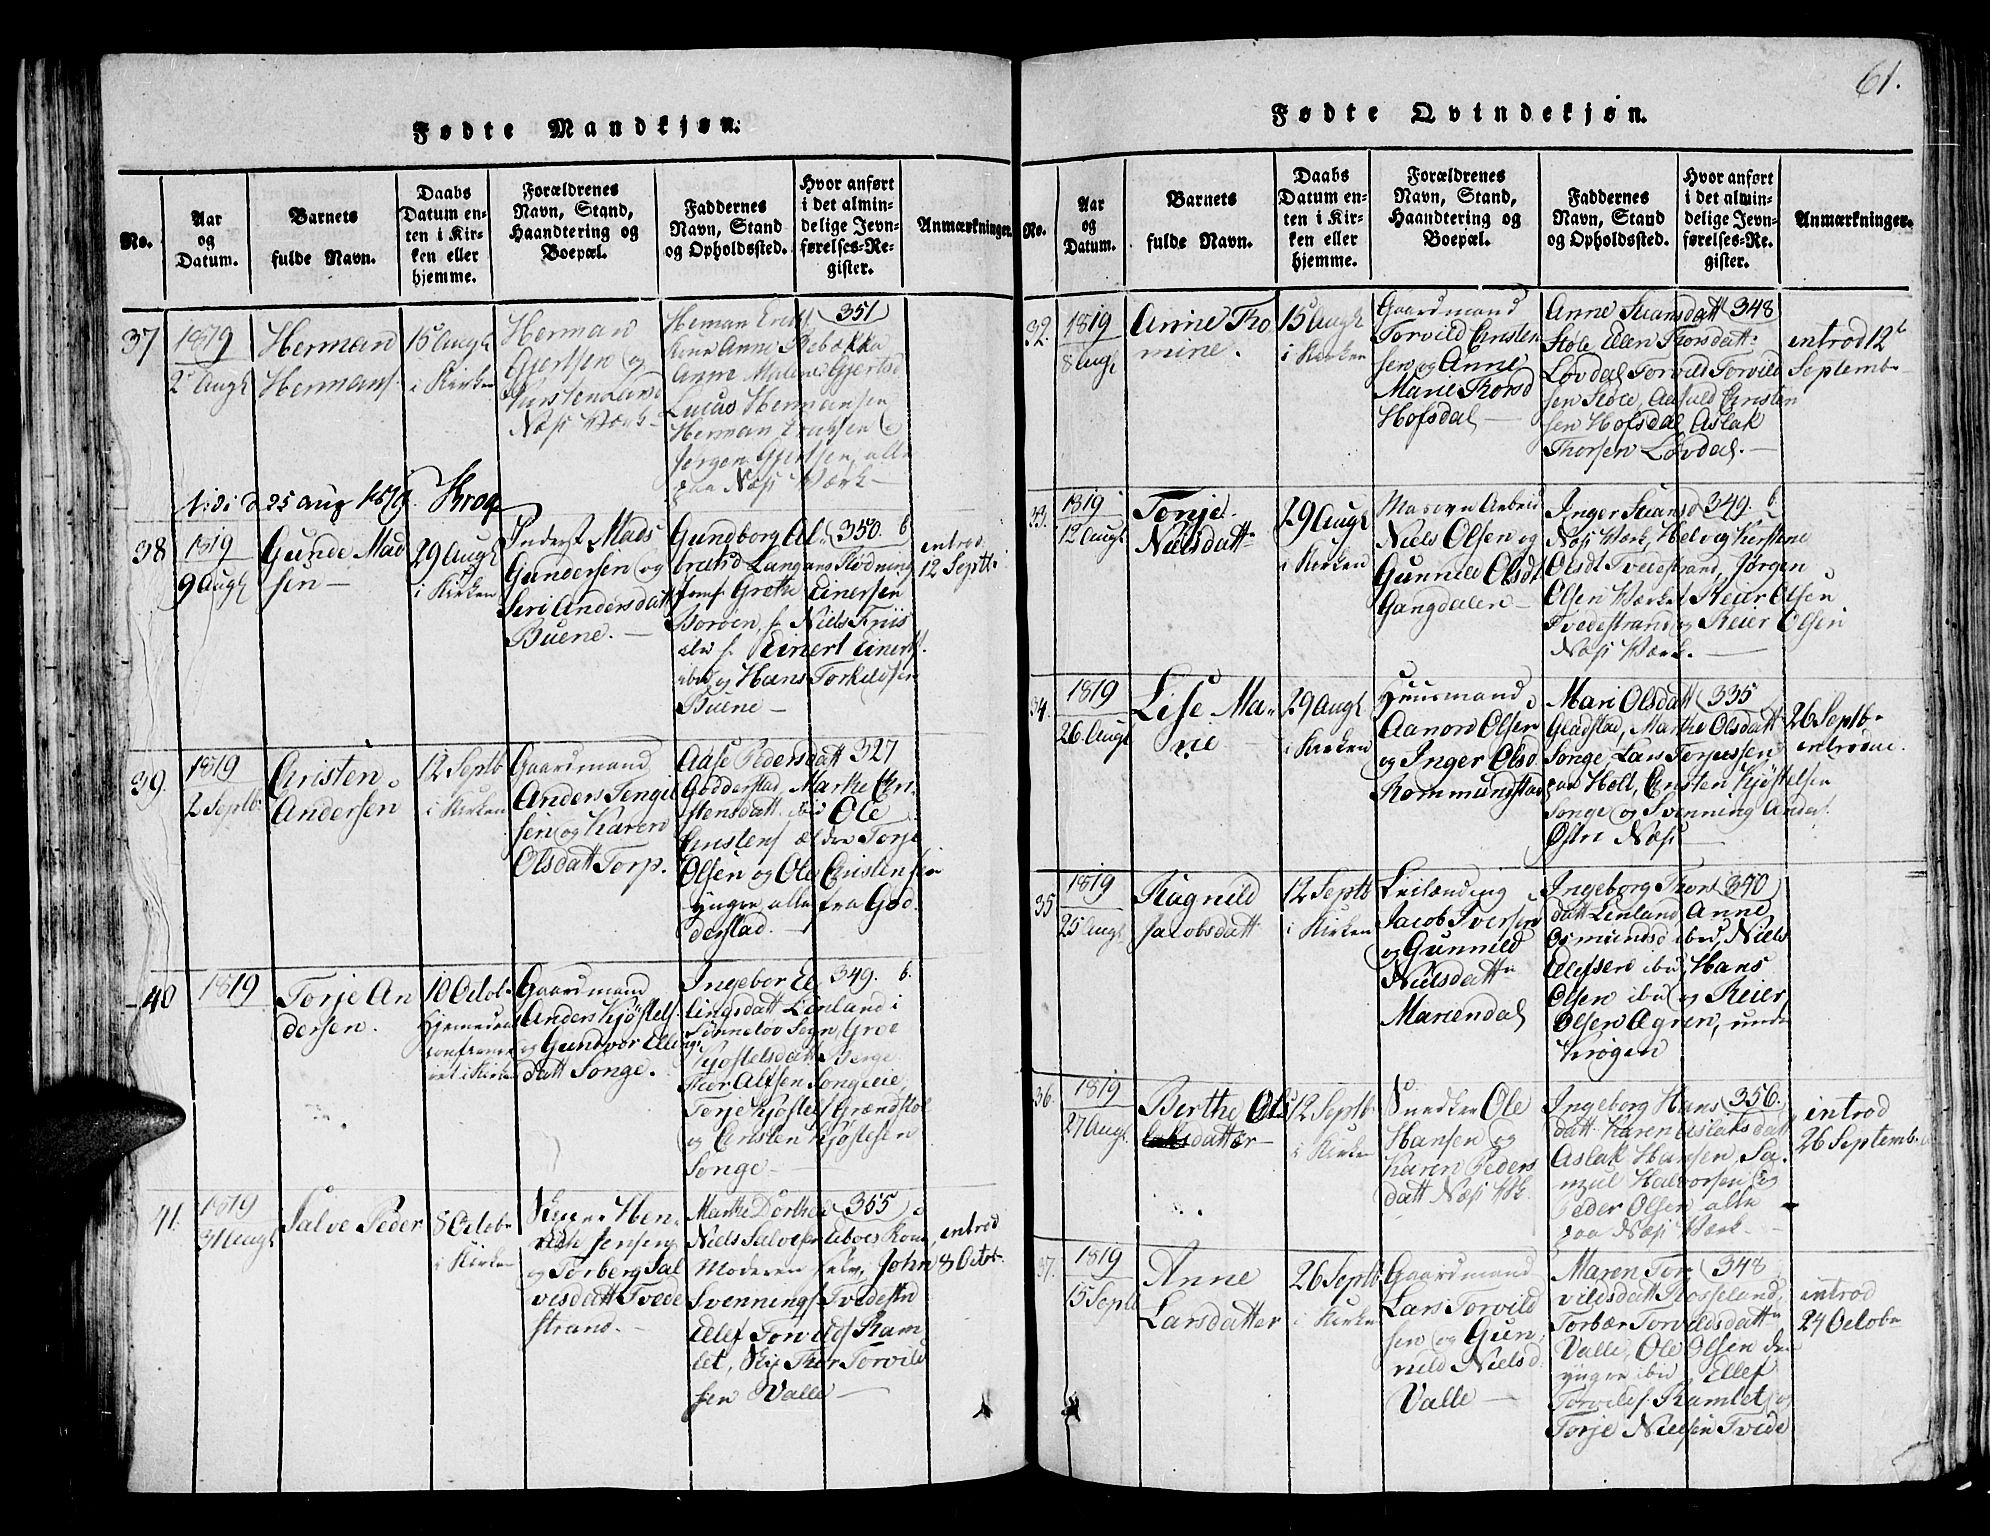 61.
Fødte Mandkjøn.
No.
Aar
og
Datum.
Barnets
fulde Navn.
Daabs
Datum en-
ten i Kir-
ken eller
hjemme.
Forældrenes
Navn, Stand,
Haandtering og
Boepæl.
Faddernes
Navn, Stand
og Opholdssted.
Hvor anført
i det almin-
delige Jevn-
førelses-Re-
gister.
Anmærkninger.
37
1819
2 Augl
Herman
Hermans.
15 Augl
i Kirken
Herman
Gjertsen og
Næss Værk
Anne Rebækka
Anne Malene Gjertsd
Lucas Hermansen
Herman Ericksen
Jørgen Gjertsen, alle
paa Næss Værk
351
25 Aug 1819. Krog
38
1819
9 Augl
Gunde Mad
sen
29 Augl
i Kirken
Inderst Mads
Gundersen og
Siri Andersdatt
Buene.
Gundborg Al
Grethe Einersen
Boroen, Niels Friis
Einert Einerts.
og Hans Torkildsen
Buene
350. b
introd.
12 Septb.
39.
1819
2 Septb.
Cristen
Andersen
12 Septb
i Kirken
Gaardmand
Anders Tengil
sen og Karen
Olsdatt Torp.
Aase Pedersdatt
Godderstad, Marthe Cri
stensdatt ibid Ole
Cristens ældre Torje
Olsen og Ole Cristensen
yngre alle fra God
derstad.
327
40
1819
Torje An
dersen.
10 Octob.
Hjemmed
i Kirken
Gaardmand
Anders Kjøstels.
og Gundvor Elling
datt Songe.
Ingebor El
lingsdatt Lenland i
Sønneløv Sogn, Groe
Kjøstelsdatt Berge
Songeeie,
Torje Kjøstels Grændstøl
og Cristen Kjøstelsen
Songe
349. b.
41.
1819
31 Augl
Salve Peder
8 Octob.
i Kirken
Hen
rich Jensen
og Torberg Sal
visdatt Tvede
strand.
Marthe Dorthe
Niels Salvesen
Moderen selv, John
Svennings Tvedestr
Ellef Torvilds Ram
let, Skip Thor Torvild
sen Valle
355
introd
8 Octob.
Fødte Qvindekjøn.
No.
Aar
og
Datum.
Barnets
fulde Navn.
Daabs
Datum en-
ten i Kir-
ken eller
hjemme.
Forældrenes
Navn, Stand,
Haandtering og
Boepæl.
Faddernes
Navn, Stand
og Opholdssted.
Hvor anført
i det almin-
delige Jevn-
førelses-Re-
gister.
Anmærkninger.
32.
1819
8 Augl
Anne Tho
mine.
15 Augl
i Kirken
Gaardmand
Torvild Cristen
sen og Anne
Marie Thorsd
Hofsdal
Anne
Støle Ellen Thorsdatt
Løvdal Torvild Torvild
sen Støle, Aasuld Cristen
sen Hofsdal Aslak
Thorsen Løvdal.
348
introd 12
Septemb.
33.
1819
12 Augl
Torje
Nielsdatt
29 Augl
i Kirken
Masovn Arbeid
Niels Olsen og
Gunnild Olsdt
Gangdalen
Inger
Næss Værk, Helvig Kirstine
Olsdt Tvedestrand, Jørgen
Olsen Værket Reier Olsen
Tvedestrand og Reier Olsen
Næss Værk.
349. b.
34.
1819
26 Augl
Lise Ma
rie
29 Augl
i Kirken
Huusmand
Aanon Olsen
og Inger Olsd.
Rommundstad
Mari Olsdatt
Gladstad, Marthe Olsdatt
Songe, Lars Torjussen
paa Holt, Cristen Kjøstelsen
Songe og Svenning Anders.
Østre Næss
335
26 Septb.
introdue.
35
1819
25 Augl
Ragnild
Jacobsdatt
12 Septb
i Kirken
Leilænding
Jacob Iversen
og Gunnild
Nielsdatt
Mariendal
Ingeborg Thors
datt Lenland Anne
Osmundsd ibid, Niels
Ellefsen ibid Hans
Olsen ibid og Reier
Olsen Agren, unde
Krøgen
340
36.
1819
27 Augl.
Berthe Ols
datter
12 Septb.
i Kirken
Snedker Ole
Hansen og
Karen Peders
datt Næss Vk.
Ingeborg Hans
datt Karen Aslaksdatt
Aslak Hansen, Sa
muel Halvorsen og
Peder Olsen alle
paa Næss Værk
356.
introd
26 Septemb.
37.
1819
15 Septb
Anne
Larsdatter
26 Septb
i Kirken
Gaardmand
Lars Torvild
sen og Gun
nild Nielsd.
Valle
Maren Tor
vildsdatt Rosseland,
Torbær Torvildsdatt
Valle, Ole Olsen den
yngre ibid Ellef
Torvilds. Ramlet og
Torje Nielsen Tvede
348
introd
24 Octob.